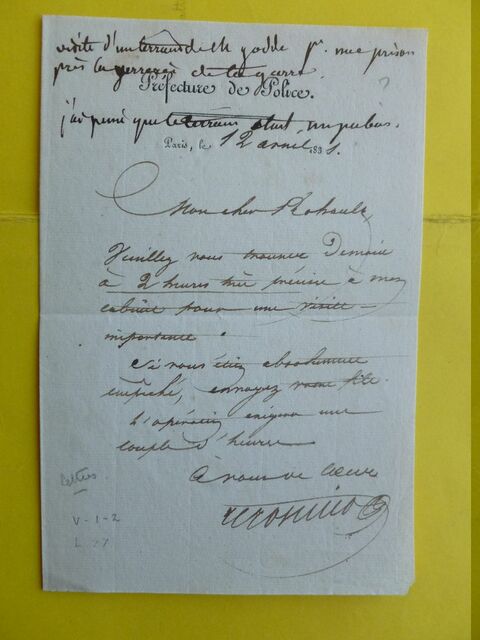 visite d'un terrain de M godde pr. une prison
près la de la gare.
Préfecture de Police.
j'ai pensé que le terrain était trop bas.
Paris, le 12 avril 1831.
Mon cher Rohault,
Veuillez vous trouver Demain
à 2 heures très précise à mon
cabinet pour une visite
importante.
Si vous étiez absolument
empêché, envoyez votre fils.
L'opération exigera une
couple d'heures
à vous de coeur
lettres
V-1-2
L 27